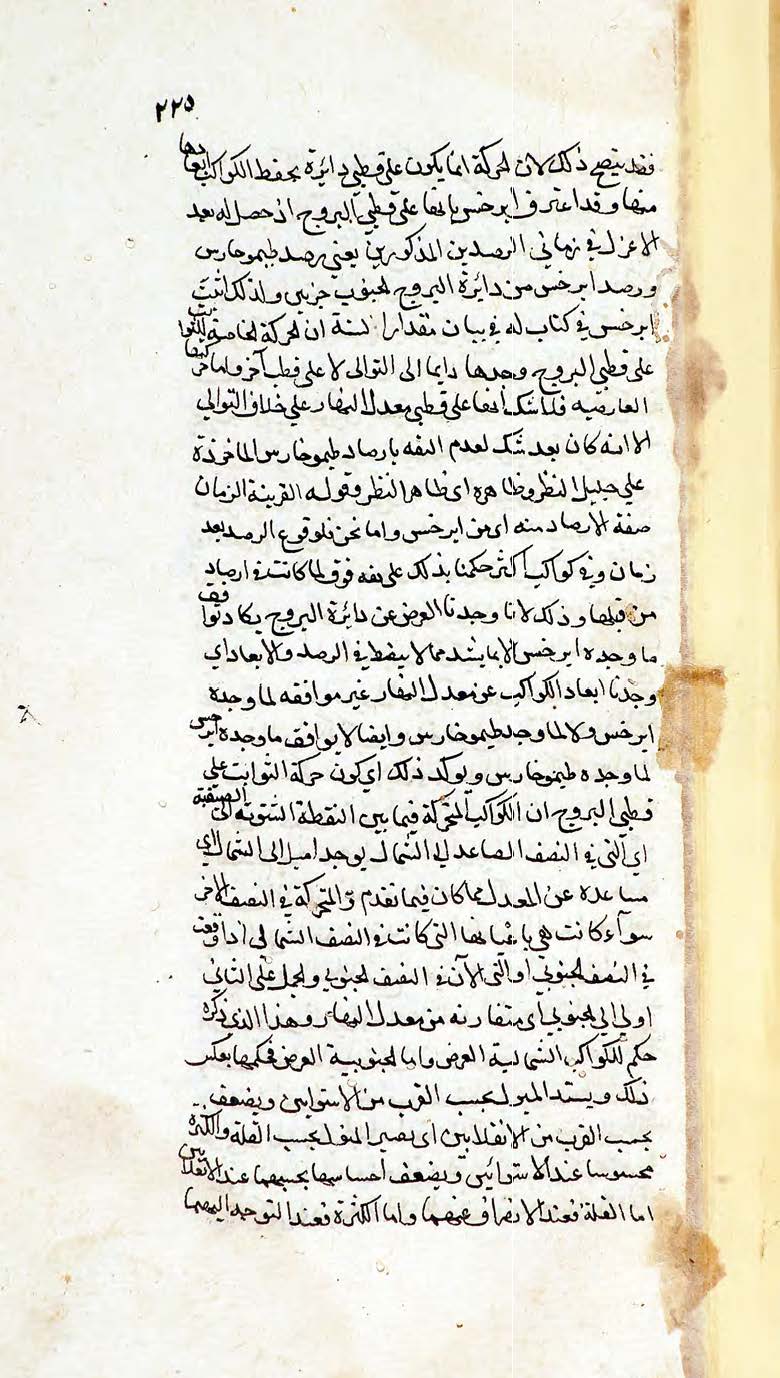 ٢٢٥
فقد يتضح ذلك لان الحركة انما يكون على قطبي دائرة يحفظ الكواكب ابعادها
منها وقد اعترف ابرخس بانها على قطبي البروج اذ حصل له بعد
الاعزل في زماني الرصدين المذكورين يعني رصد طيموخارس
ورصد ابرخس من دائرة البروج لجنوب جزيين ولذلك اثبت
ابرخس في كتاب له في بيان مقدار السنة ان الحركة الخاصة بالثوابت
على قطبي البروج وجدها دايما الى التوالى لا على قطب آخر واما حركتها
العارضيه فلا شك انها على قطبي معدل النهار على خلاف التوالي
الا انه كان بعد شك لعدم الثقه بارصاد طيموخارس الماخوذة
على جليل النظر وظاهره اى ظاهر النظر وقوله القريبة الزمان
صفة الارصاد منه اى من ابرخس واما نحن فلوقوع الرصد بعد
زمان وفي كواكب اكثر حكمنا بذلك على ثقه فوق لما كانت في ارصاد
من قبلها وذلك لانا وجدنا العرض عن دائرة البروج يكاد توافق
ما وجده ابرخس الا بما يشد مما لا يضبط في الرصد والابعاد اي
وجدنا ابعاد الكواكب عن معدل النهار غير موافقه لما وجده
ابرخس ولا لما وجد طيموخارس وايضا لا يوافق ما وجده ابرخس
لما وجده طيموخارس ويوكد ذلك اي كون حركة الثوابت على
قطبي البروج ان الكواكب المتحركة فيما بين النقطة الشتوية الى الصيفية
اي التي في النصف الصاعد الى الشمال يوجد اميل الى الشمال اي
مساعده عن المعدل مما كان فيما تقدم والمتحركة في النصف الاخر
سوآء كانت هي باعيانها التي كانت في النصف الشمالى اذا وقعت
في النصف الجنوبي او التي الآن في النصف الجنوبي والحمل على الثاني
اولي الي الجنوبي اى متقاربه من معدل النهار وهذا الذي ذكره
حكم للكواكب الشمالية العرض واما الجنوبية العرض فحكمها بعكس
ذلك ويستد الميول بحسب القرب من الاستوايين ويضعف
بحسب القرب من الانقلابين اى يصير الميول بحسب القلة والكثرة
محسوسا عند الاستوائين ويضعف احساسها بحسبهما عند الانقلابين
اما القلة فعند الانصراف عنهما واما الكثرة فعند التوجه اليهما